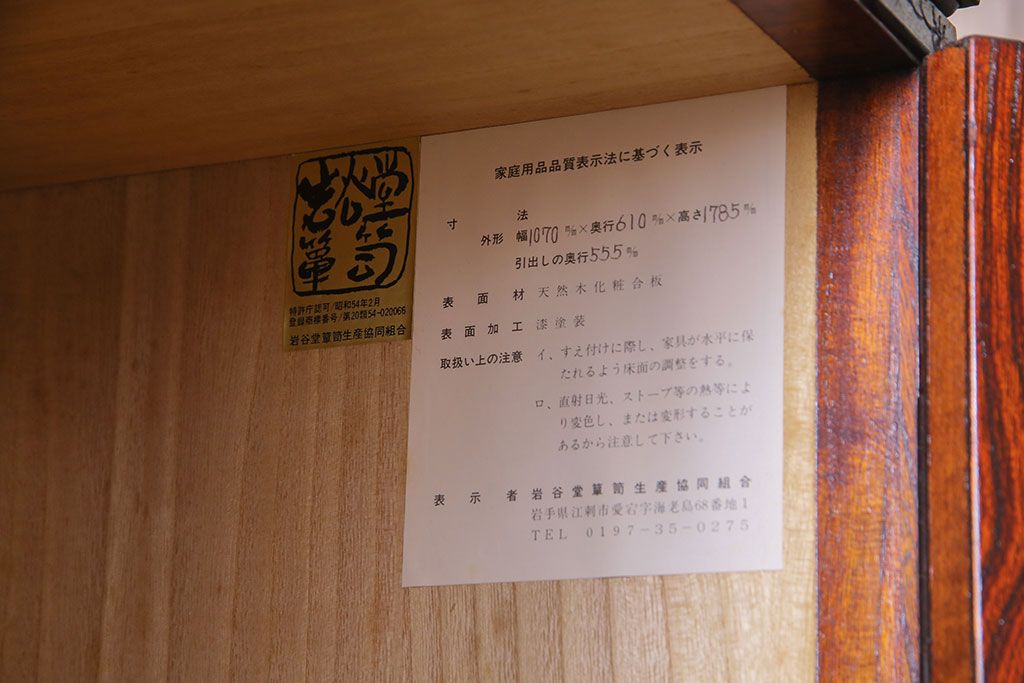 岩谷堂
簞笥
特許庁認可/昭和54年2月
登録商標番号/第20類54-020066
岩谷堂簞笥生産協同組合
家庭用品品質表示法に基づく表示
寸法
外形 幅1070㎜×奥行610㎜×高さ1785㎜
引出しの奥行555㎜
表面材 天然木化粧合板
表面加工 漆塗装
取扱い上の注意 イ、すえ付けに際し、家具が水平に保
たれるよう床面の調整をする。
ロ、直射日光、ストーブ等の熱等によ
り変色し、または変形することが
あるから注意して下さい。
表示者 岩谷堂簞笥生産協同組合
岩手県江刺市愛宕字海老島68番地1
TEL 0197-35-0275